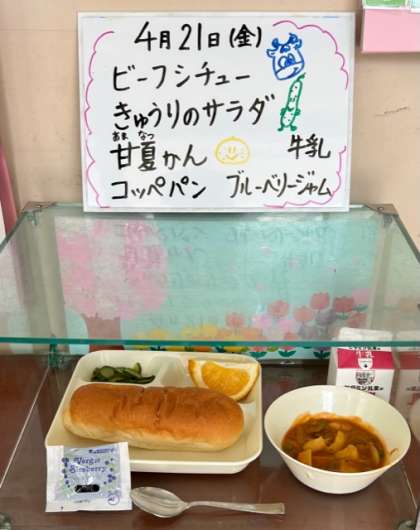 4月21日(金)
ビーフシチュー
きゅうりのサラダ
あま なつ
甘夏かん 牛乳
コッペパン ブルーベリージャム
牛乳